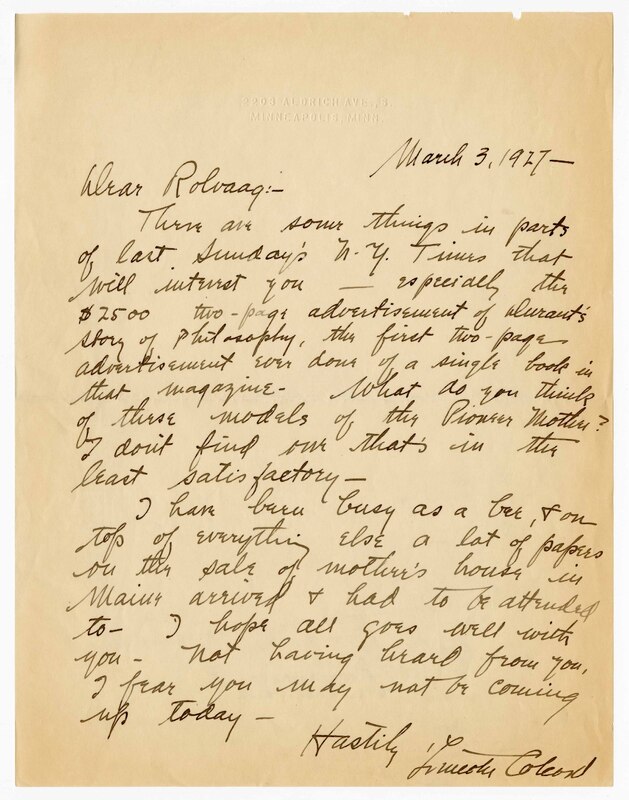 2203 ALDRICH AVE., S.
MINNEAPOLIS, MINN.
March 3, 1927—
Dear Rolvaag:—
There are some things in parts
of last Sunday's N.Y. Times that
will interest you — especially the
$2500 two-page advertisement of Durant's
Story of Philosophy, the first two-page
advertisement ever done of a single book in
that magazine— What do you think
of these models of the Pioneer Mother?
I don't find one that's in the
least satisfactory—
I have been busy as a bee, & on
top of everything else a lot of papers
on the sale of mother's house in
Maine arrived & had to be attended
to— I hope all goes well with
you— Not having heard from you,
I fear you may not be coming
up today—
Hastily, Lincoln Colcord